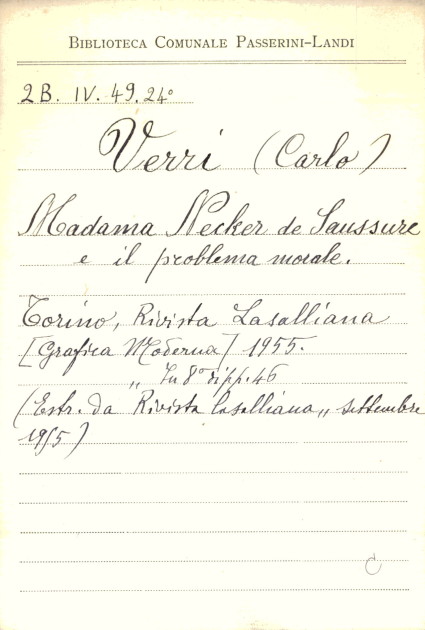 BIBLIOTECA COMUNALE PASSERINI-LANDI
2B. IV. 49. 24°
Verri (Carlo)
Madama Necker de Saussure
e il problema morale.
Torino, Rivista Lasalliana
[Grafica Moderna] 1955.
„ In 8° di pp. 46
(Estr. da Rivista Lasalliana „ settembre
1955)
C